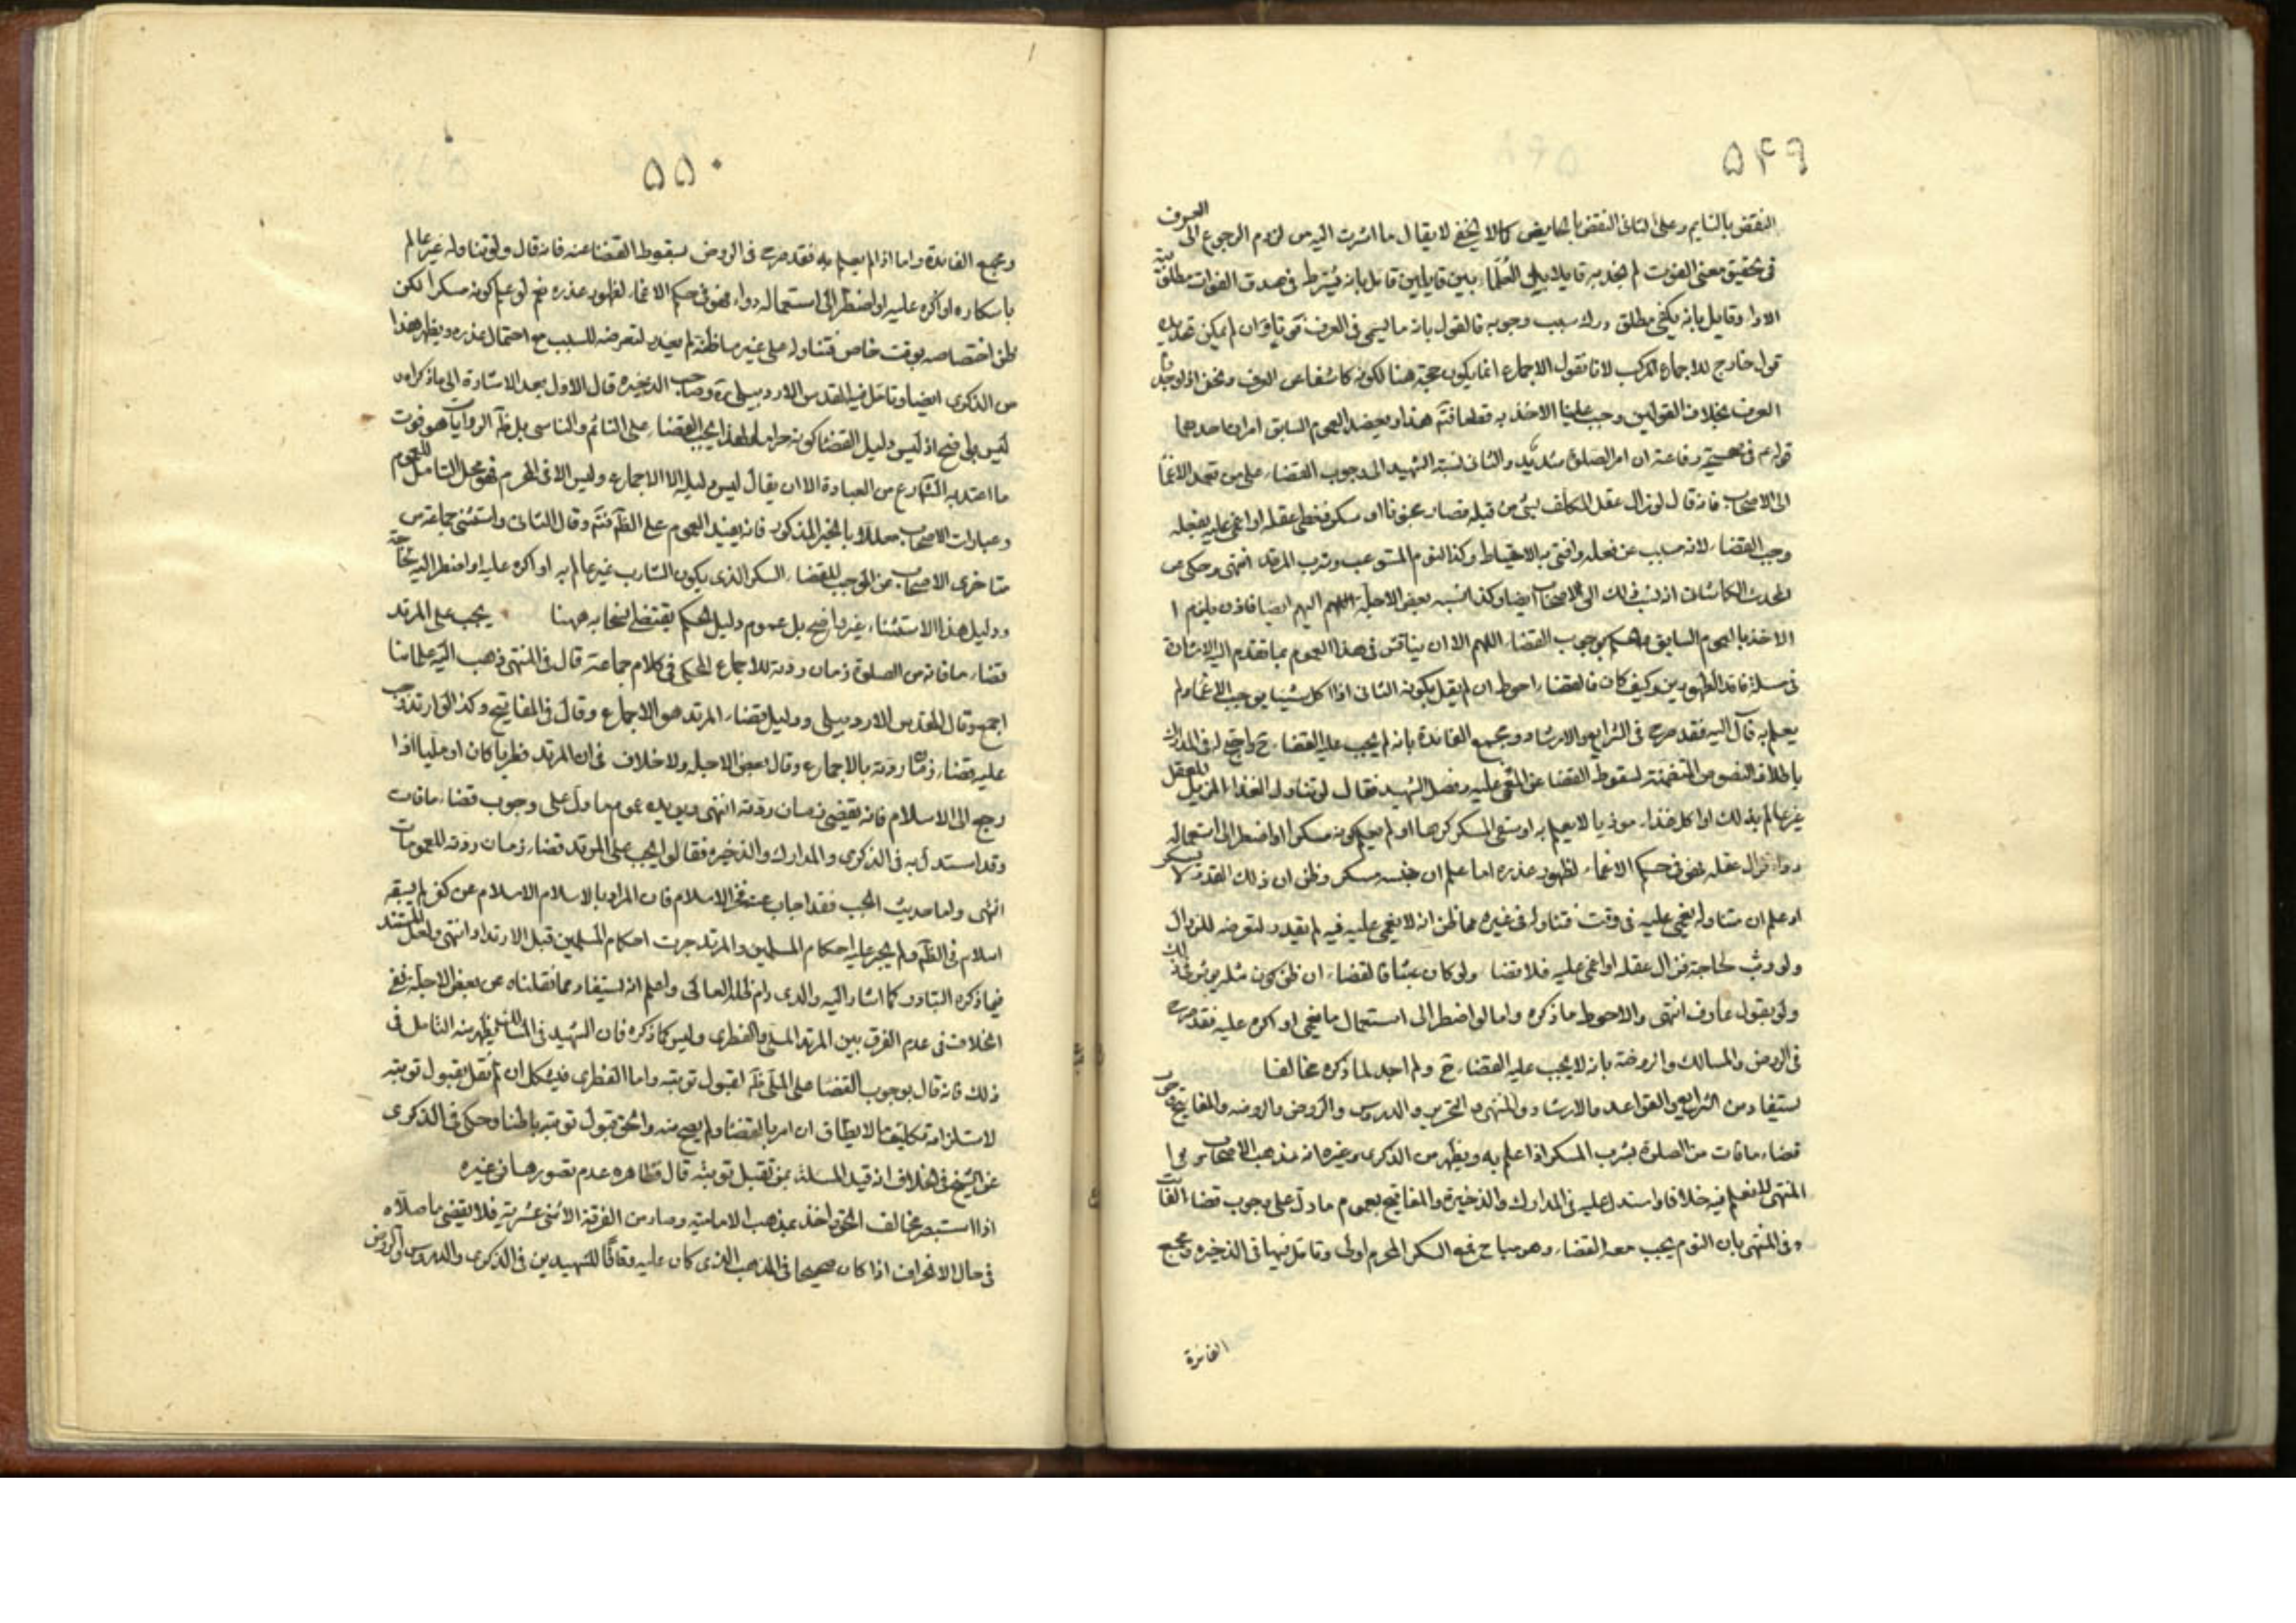 ۵۴۹
النقض بالنايم وعلى الثانى النقض بالحايض كما لا يخفى لا يقال ما اشرت اليه من لزوم الرجوع الى العرف
فى تحقيق معنى الفوت لم نجد به قايلا بين العلماء بين قايلين قائل بانه يشترط فى صدق الفوات مطلوبية
الاداء وقايل بانه يكفى مطلق درك سبب وجوبه فالقول بانه ما يسمى فى العرف فوتا وان لم يمكن تحديده
قول خارج للاجماع المركب لانا نقول الاجماع انما يكون حجة هنا لكونه كاشفا عن
العرف بخلاف القولين وجب علينا الاخذ به قطعا فتم هذا ويعضد العموم السابق امران احدهما
قوله ع فى صحيحة رفاعة ان امر الصلوة شديد والثانى نسبة الشهيد الى وجوب القضاء على من تعمد الاغما
الى الاصحاب فانه قال لو زال عقل المكلف بشئ من قبله فصار مجنونا او سكر فغطى عقله او اغمى عليه بفعله
وجب القضاء لانه مسبب عن فعله وافتى به الاصحاب وكذا النوم المستوعب وشرب المرقد انتهى وحكى عن
المحدث الكاشانى انه نسب ذلك الى الاصحاب ايضا وكذا نسبه بعض الاجلة اليهم ايضا فاذن يلزم ا
الاخذ بالعموم السابق والحكم بوجوب القضاء اللهم الا ان يناقش فى هذا العموم بما تقدم اليه الاشارة
فى مسئلة فاقد الطهورين وكيف كان فالقضاء احوط ان لم نقل بكونه الثانى اذا اكل شيئا يوجب الاغماء ولم
يعلم به قال اليه فقد صرح فى الشرايع والارشاد ومجمع الفائدة بانه لم يجب عليه القضاء ح واحتج له فى المدارك
باطلاق النصوص المتضمنة لسقوط القضا عن المغمى عليه وفصل الشهيد فقال لو تناول الغذاء المزيل للعقل
غير عالم بذلك او اكل غذاء موذيا لا يعلم به او سقى المسكر كرها او لم يعلم كونه مسكرا او اضطر الى استعماله
دواء فزال عقله فهو فى حكم الاغماء لظهور عذره اما علم ان جنسه مسكر وظن ان ذلك القدر لا يسكر
او علم ان متناوله يغمى عليه فى وقت فتناوله فى غيره مما ظن انه لا يغمى عليه فيه لم يعذر لتعرضه للزوال
ولو وثب لحاجة فزال عقله او اغمى عليه فلا قضاء ولو كان عبثا فالقضاء ان ظن كون مثله يؤثر ذلك
ولو بقول عارف انتهى والاحوط ما ذكره واما لو اضطر الى استعمال ما يغمى او اكره عليه فقد صرح
فى الروض والمسالك والروضة بانه لا يجب عليه القضاء ح ولم اجد لما ذكره مخالفا
يستفاد من الشرايع والقواعد والارشاد والمنتهى والتحرير والدروس والروض والروضه والمفاتيح وجوب
قضاء ما فات من الصلوة بشرب المسكر اذا علم به ويظهر من الذكرى وغيره انه مذهب الاصحاب وفى ا
المنتهى لا نعلم فيه خلافا واستدل عليه فى المدارك والذخيرة والمفاتيح بعموم ما دل على وجوب قضاء الفائت
وفى المنتهى بان النوم يجب معه القضاء وهو مباح فمع السكر المحرم اولى وتامل فيها فى الذخيرة ومجمع
الفائدة
۵۵۰
ومجمع الفائدة واما اذا لم يعلم به فقد صرح فى الروض بسقوط القضاء عنه فانه قال ولو تناوله غير عالم
باسكاره او اكره عليه او اضطر الى استعماله دواء فهو فى حكم الاغماء لظهور عذره نعم لو علم كونه مسكرا لكن
ظن اختصاصه بوقت خاص فتناوله على غير ما ظنه لم يعذر لتعرضه للسبب مع احتمال عذره ويظهر هذا
من الذكرى ايضا وتامل فيه المقدس الاردبيلى ره وصاحب الذخيره قال الاول بعد الاشارة الى ما ذكراه
ليس بواضح اذ ليس دليل القضاء كونه حراما ولهذا يجب القضاء على النائم والناسى بل ظاهر الروايات هو فوت
ما اعتد به الشارع من العبادة الا ان يقال ليس دليله الا الاجماع وليس الا فى المحرم فهو محل التامل للعموم
وعبارات الاصحاب معللا بالخبر المذكور فانه يفيد العموم على الظاهر فتم وقال الثانى واستثنى جماعة من
متاخرى الاصحاب من الموجب للقضاء السكر الذى يكون الشارب غير عالم به او اكره عليه او اضطر اليه لحاجة
ودليل هذا الاستثناء غير واضح بل عموم دليل الحكم يقتضى انسحابه ههنا يجب على المرتد
قضاء ما فاته من الصلوة زمان ردته للاجماع المحكى فى كلام جماعة قال فى المنتهى ذهب اليه علمائنا
اجمع وقال المقدس الاردبيلى ودليل قضاء المرتد هو الاجماع وقال فى المفاتيح وكذا لو ارتد وجب
عليه قضاء زمان ردته بالاجماع وقال بعض الاجله ولا خلاف فى ان المرتد فطريا كان او مليا اذا
رجع الى الاسلام فانه يقضى زمان ردته انتهى ويؤيده عموم ما دل على وجوب قضاء ما فات
وقد استدل به فى الذكرى والمدارك والذخيره فقالوا يجب على المرتد قضاء زمان ردته للعمومات
انتهى واما حديث الجب فقد اجاب عنه فخر الاسلام فان المراد بالاسلام الاسلام عن كفر لم يسبقه
اسلام فى الظاهر ولم يجر عليه احكام المسلمين والمرتد جرت احكام المسلمين قبل الارتداد انتهى ولعل المستند
فيما ذكره التبادر كما اشار اليه والدى دام ظله العالى واعلم انه يستفاد مما نقلناه عن بعض الاجلة نفى
الخلاف فى عدم الفرق بين المرتد الملى والفطرى وليس كما ذكره فان الشهيد فى المسالك يظهر منه التامل فى
ذلك فانه قال بوجوب القضا على الملى ظاهر لقبول توبته واما الفطرى فيشكل ان لم نقل بقبول توبته
لاستلزامه تكليف ما لا يطاق ان امر بالقضاء ولم يصح منه والحق قبول توبته باطنا وحكى فى الذكرى
عن الشيخ فى الخلاف انه قيد المسئلة بمن تقبل توبته قال فظاهره عدم تصورها فى غيره
اذا استبصر مخالف الحق واخذ بمذهب الامامية وصار من الفرقة الاثنى عشرية فلا يقضى ما صلاه
فى حال الانحراف اذا كان صحيحا فى المذهب الذى كان عليه وفاقا للشهيدين فى الذكرى والدروس والروض